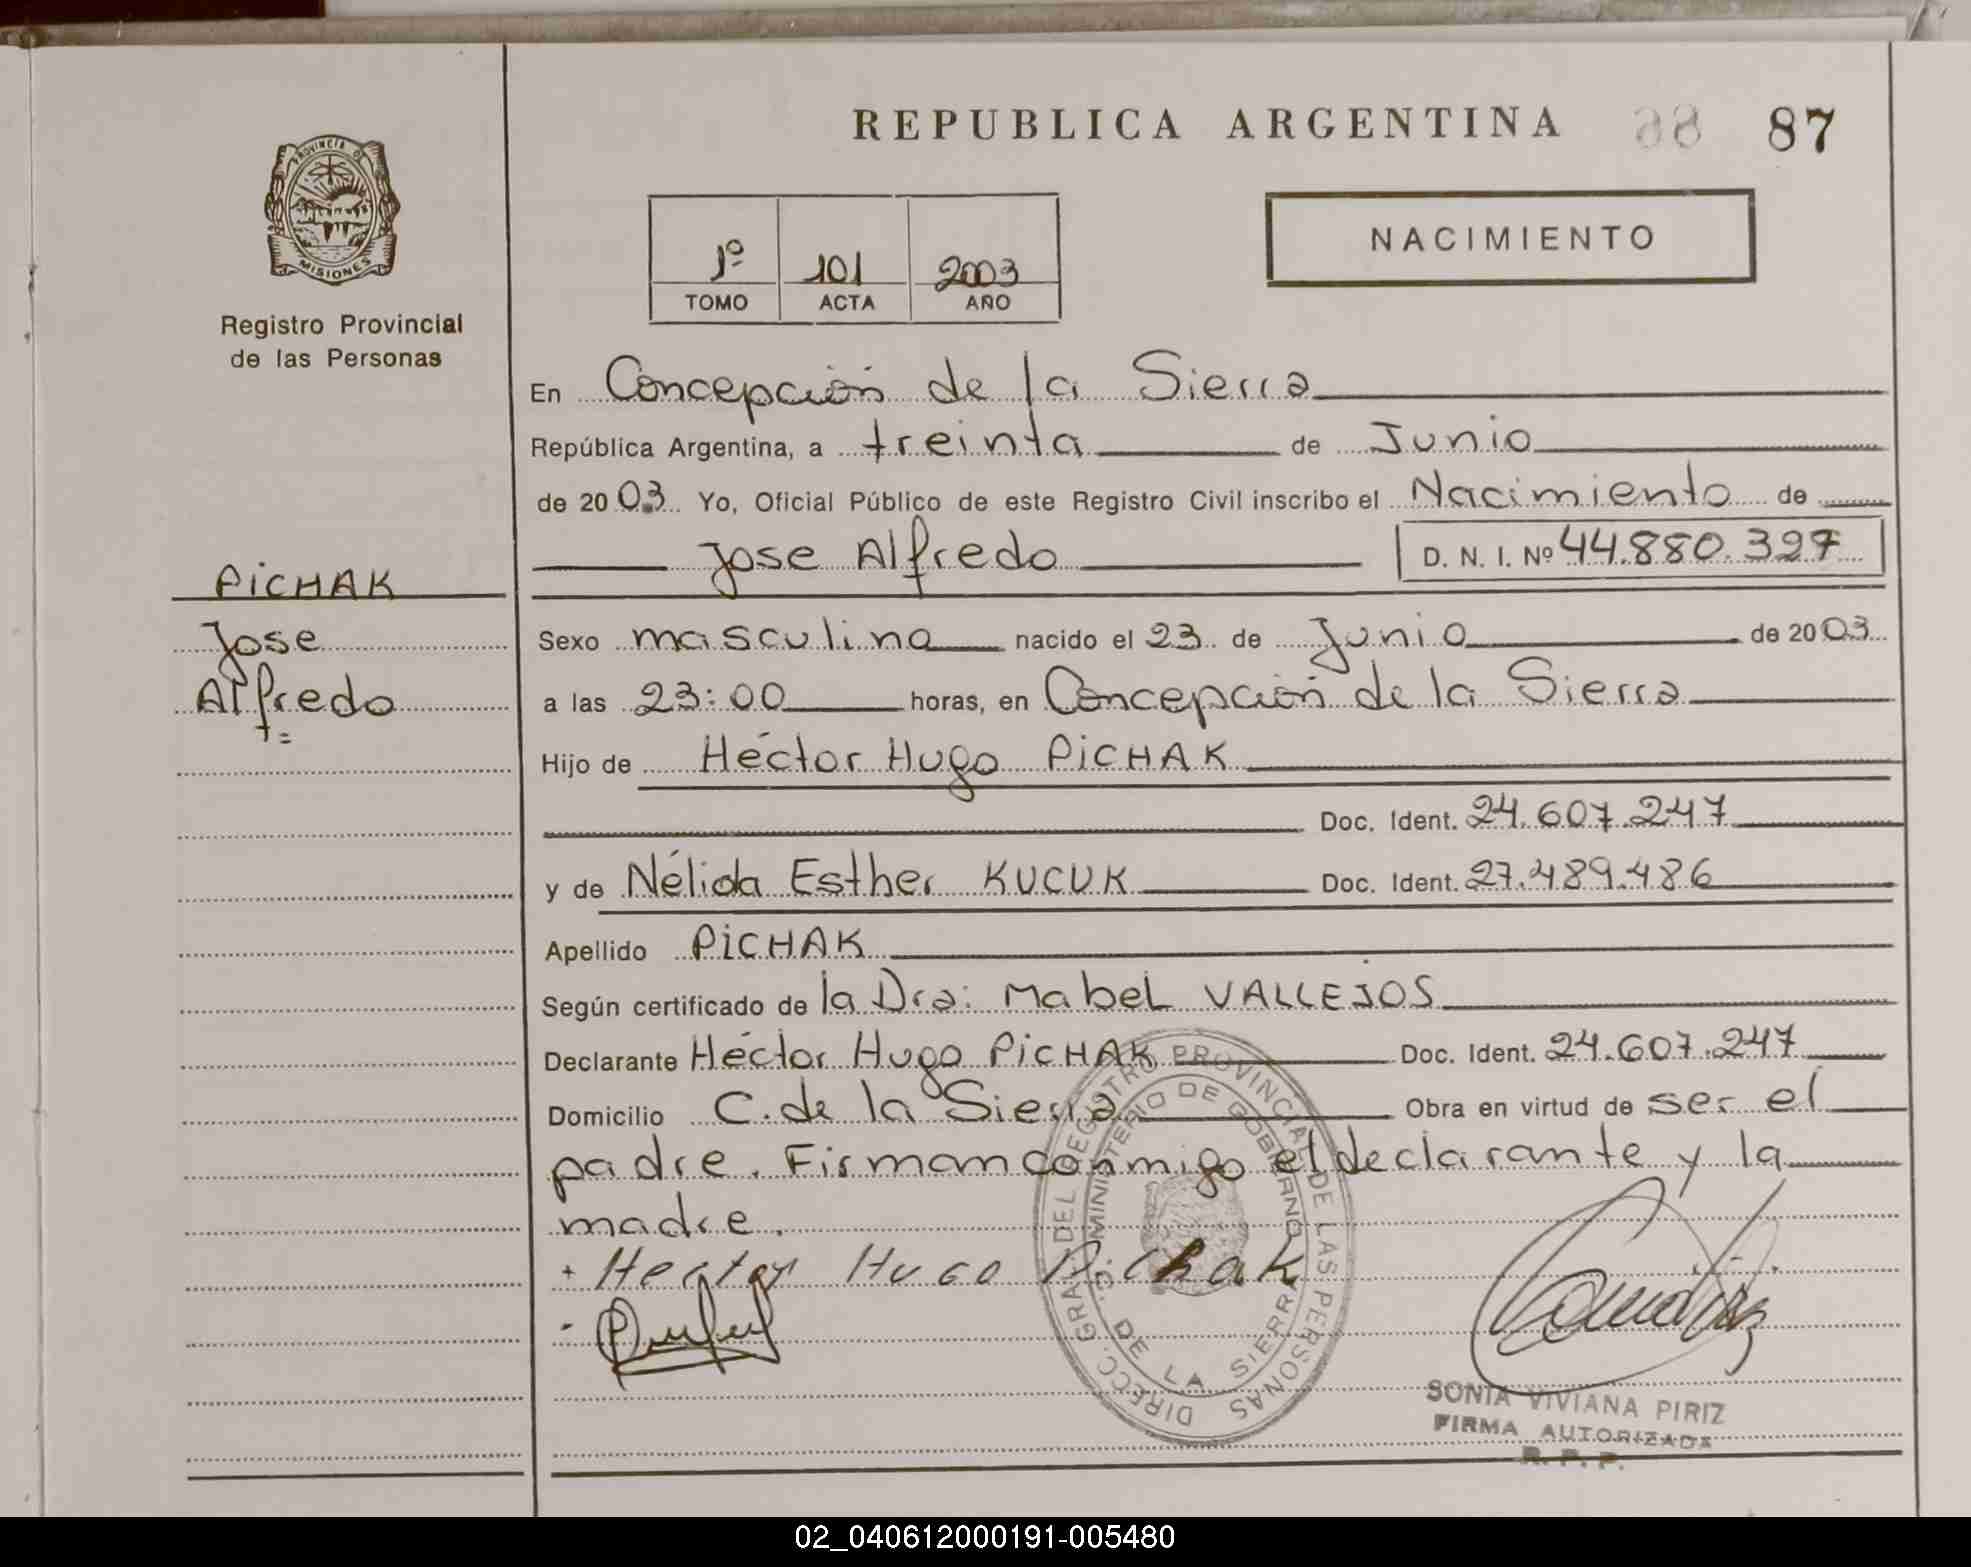 REPUBLICA ARGENTINA 88 87
PROVINCIA DE
MISIONES
Registro Provincial
de las Personas
1º 101 2003
TOMO ACTA AÑO
NACIMIENTO
En Concepción de la Sierra
República Argentina, a treinta de Junio
de 2003. Yo, Oficial Público de este Registro Civil inscribo el Nacimiento de
Jose Alfredo D. N. I. Nº 44.880.327
PICHAK
Jose
Alfredo
Sexo masculino nacido el 23 de Junio de 2003
a las 23:00 horas, en Concepción de la Sierra
Hijo de Héctor Hugo PICHAK
Doc. Ident. 24.607.247
y de Nélida Esther KUCUK Doc. Ident. 27.489.486
Apellido PICHAK
Según certificado de la Dra: Mabel VALLEJOS
Declarante Héctor Hugo PICHAK Doc. Ident. 24.607.247
Domicilio C. de la Sierra Obra en virtud de ser el
padre. Firman conmigo el declarante y la
madre.
+ Hector Hugo Pichak
DIRECC. GRAL. DEL REGISTRO PROVINCIAL DE LAS PERSONAS
MINISTERIO DE GOBIERNO
C. DE LA SIERRA
SONIA VIVIANA PIRIZ
FIRMA AUTORIZADA
R. P. P.
02_040612000191-005480